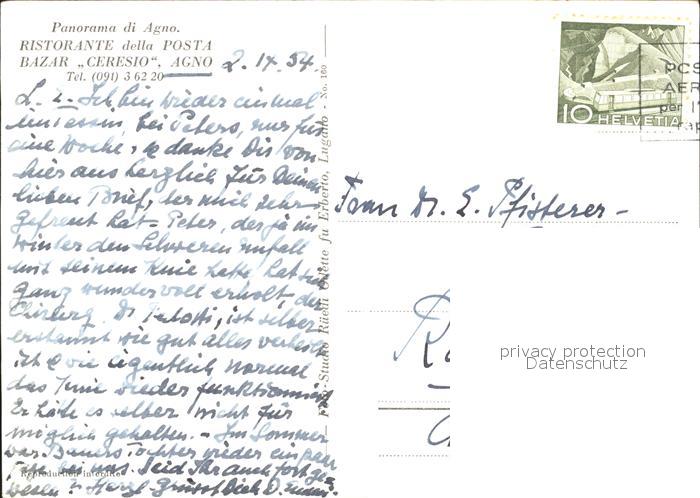 Panorama di Agno.
RISTORANTE della POSTA
BAZAR „CERESIO“, AGNO
Tel. (091) 3 62 20
2. IX 54.
L. L. Ich bin wieder einmal
bei Peters, nur für
eine Woche, & danke Dir von
hier aus herzlich für Deinen
lieben Brief, der mich sehr
gefreut hat – Peter, der ja im
Winter den schweren Unfall
mit seinem Knie hatte, hat sich
ganz wundervoll erholt – der
Chirurg Dr. ist selber
erstaunt wie gut alles verheilt
ist & wie eigentlich normal
das Knie wieder funktioniert
Er hätte es selber nicht für
möglich gehalten. – Im Sommer
war Töchter wieder ein paar
bei uns. Seid Ihr auch fort ge-
wesen? Herzl. grüsst Dich D.
Reproduction interdite
Foto-Studio Rüedi Odette fu Erberto, Lugano - No. 160
10 HELVETIA
POS
AER
per l'
rap
Frau Dr. E. Pfisterer –
privacy protection
Datenschutz